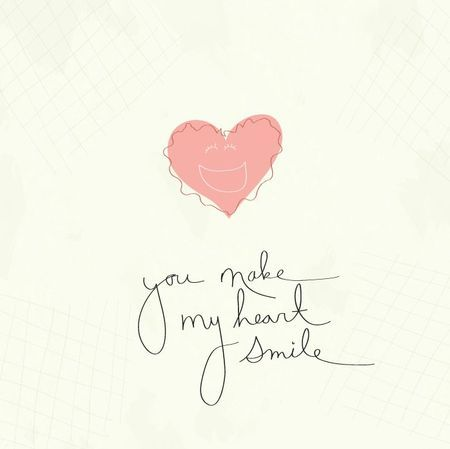 you make
my heart
smile